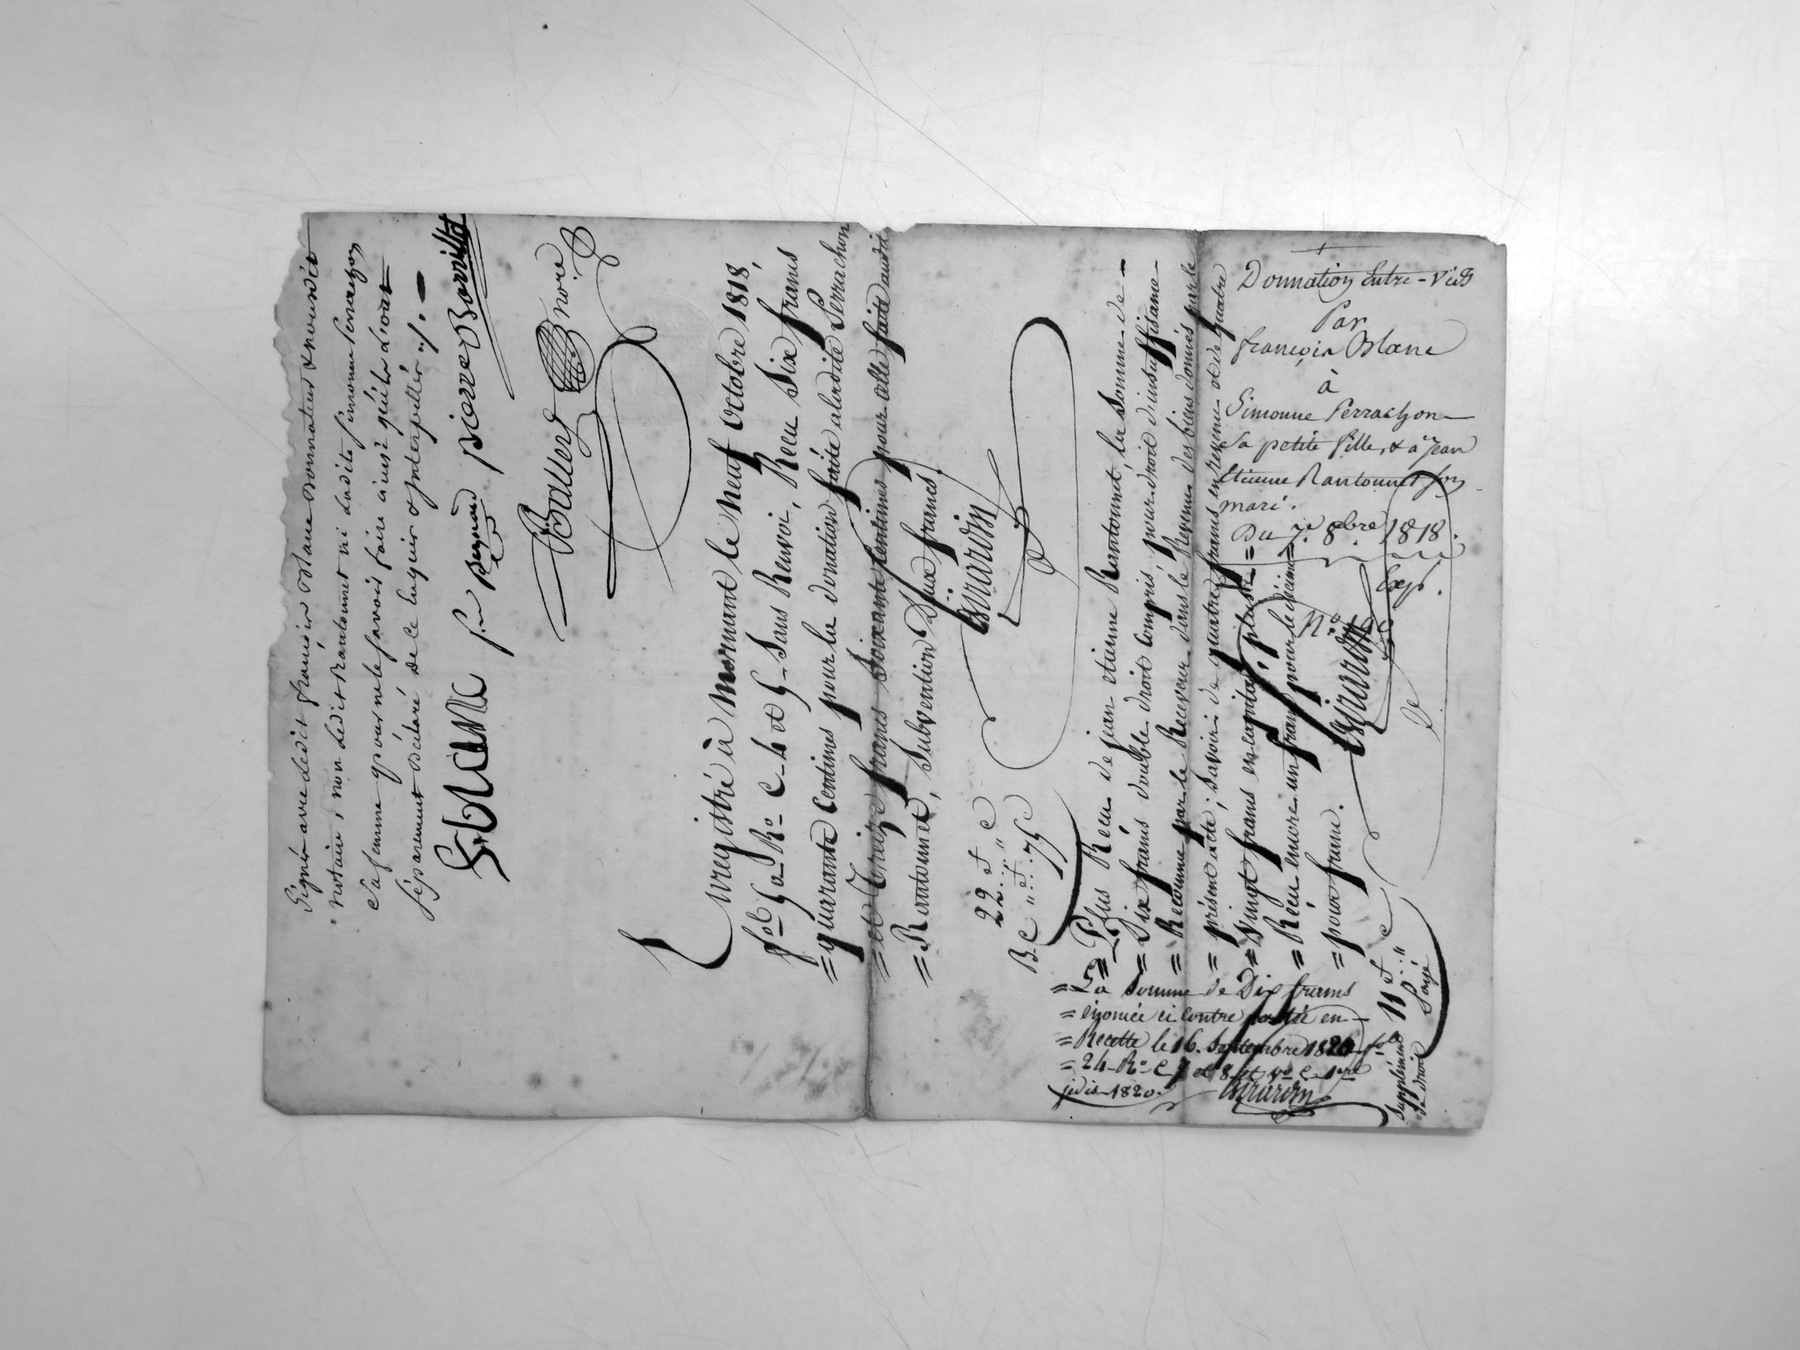 Signé avec ledit françois Blanc Donnateur & nousdit
Notaire, non ledit Rantonnet ni ladite simonne Perrachon
Sa femme pour ne le savoir faire ainsi qu'ils L'ont
séparément déclaré de ce Enquis & Interpellés ./. =
f. blanc pierre Borritta
Baller Noire
Enregistré à mornant le neuf octobre 1818,
f.o 50 R.o C. 4 et 5 Sans Renvoi, Recu Six francs
= quarante Centimes pour la donation faite aladite Perrachon
= et Treize francs Soixante Centimes pour celle faite audit
= Rantonnet, Subvention Deux francs.
Girardin
22 f " c
B.C " f 75 c
= Plus Recu de jean etienne Rantonnet, la Somme de =
= Dix francs double droit Compris, pour droit d'insuffisance
= Reconnue par le Receveur dans le Revenu des biens donnés par le
= présent acte; Savoir: de quatre francs en revenu et de quatre
= Vingt francs en Capital, plus =
= Recu encore un franc pour le décime =
= pour franc.
Girardin
= La Somme de Dix francs
= énoncée ci Contre portée en
= Recette le 16. Septembre 1820 f.o
= 24 R.o C. 7 et 8 et V.o C. 1ere
jedis 1820.
Girardin
Supplément 11 f " c
de droit Payé
Donnation Entre-Vifs
Par
françois Blanc
à
Simonne Perrachon
Sa petite fille, & à Jean
Etienne Rantonnet son
mari.
Du 7.e 8.bre 1818.
Exp.
N.o